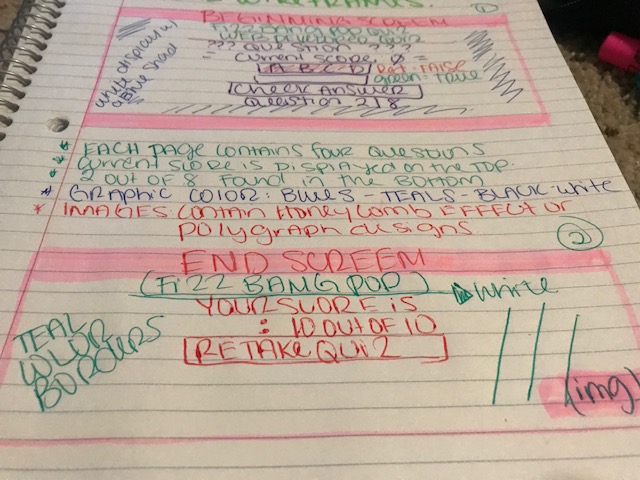 WIREFRAMES.
①
BEGINNING SCREEN
Fizz BANG POP QUIZ
??? QUESTION ???
= CURRENT SCORE: Ø =
A B C D
Red = FALSE
green = TRUE
CHECK ANSWER
QUESTION 2/8
white display w/
a blue shad
* EACH PAGE CONTAINS four QUESTIONS
* Current SCORE is DISPLAYED on the TOP.
* 2 OUT OF 8 Found in the BOTTOM
* GRAPHIC COLOR: BLUES - TEALS - BLACK - white
* IMAGES Contain HoneyComb EFFECT or
POLYGRAPH designs
②
END SCREEM
(FizZ BANG POP)
white
YOUR SCORE iS
: 10 OUT OF 10
RETAKE QUIZ
TEAL
COLOR
BORDERS
(img)